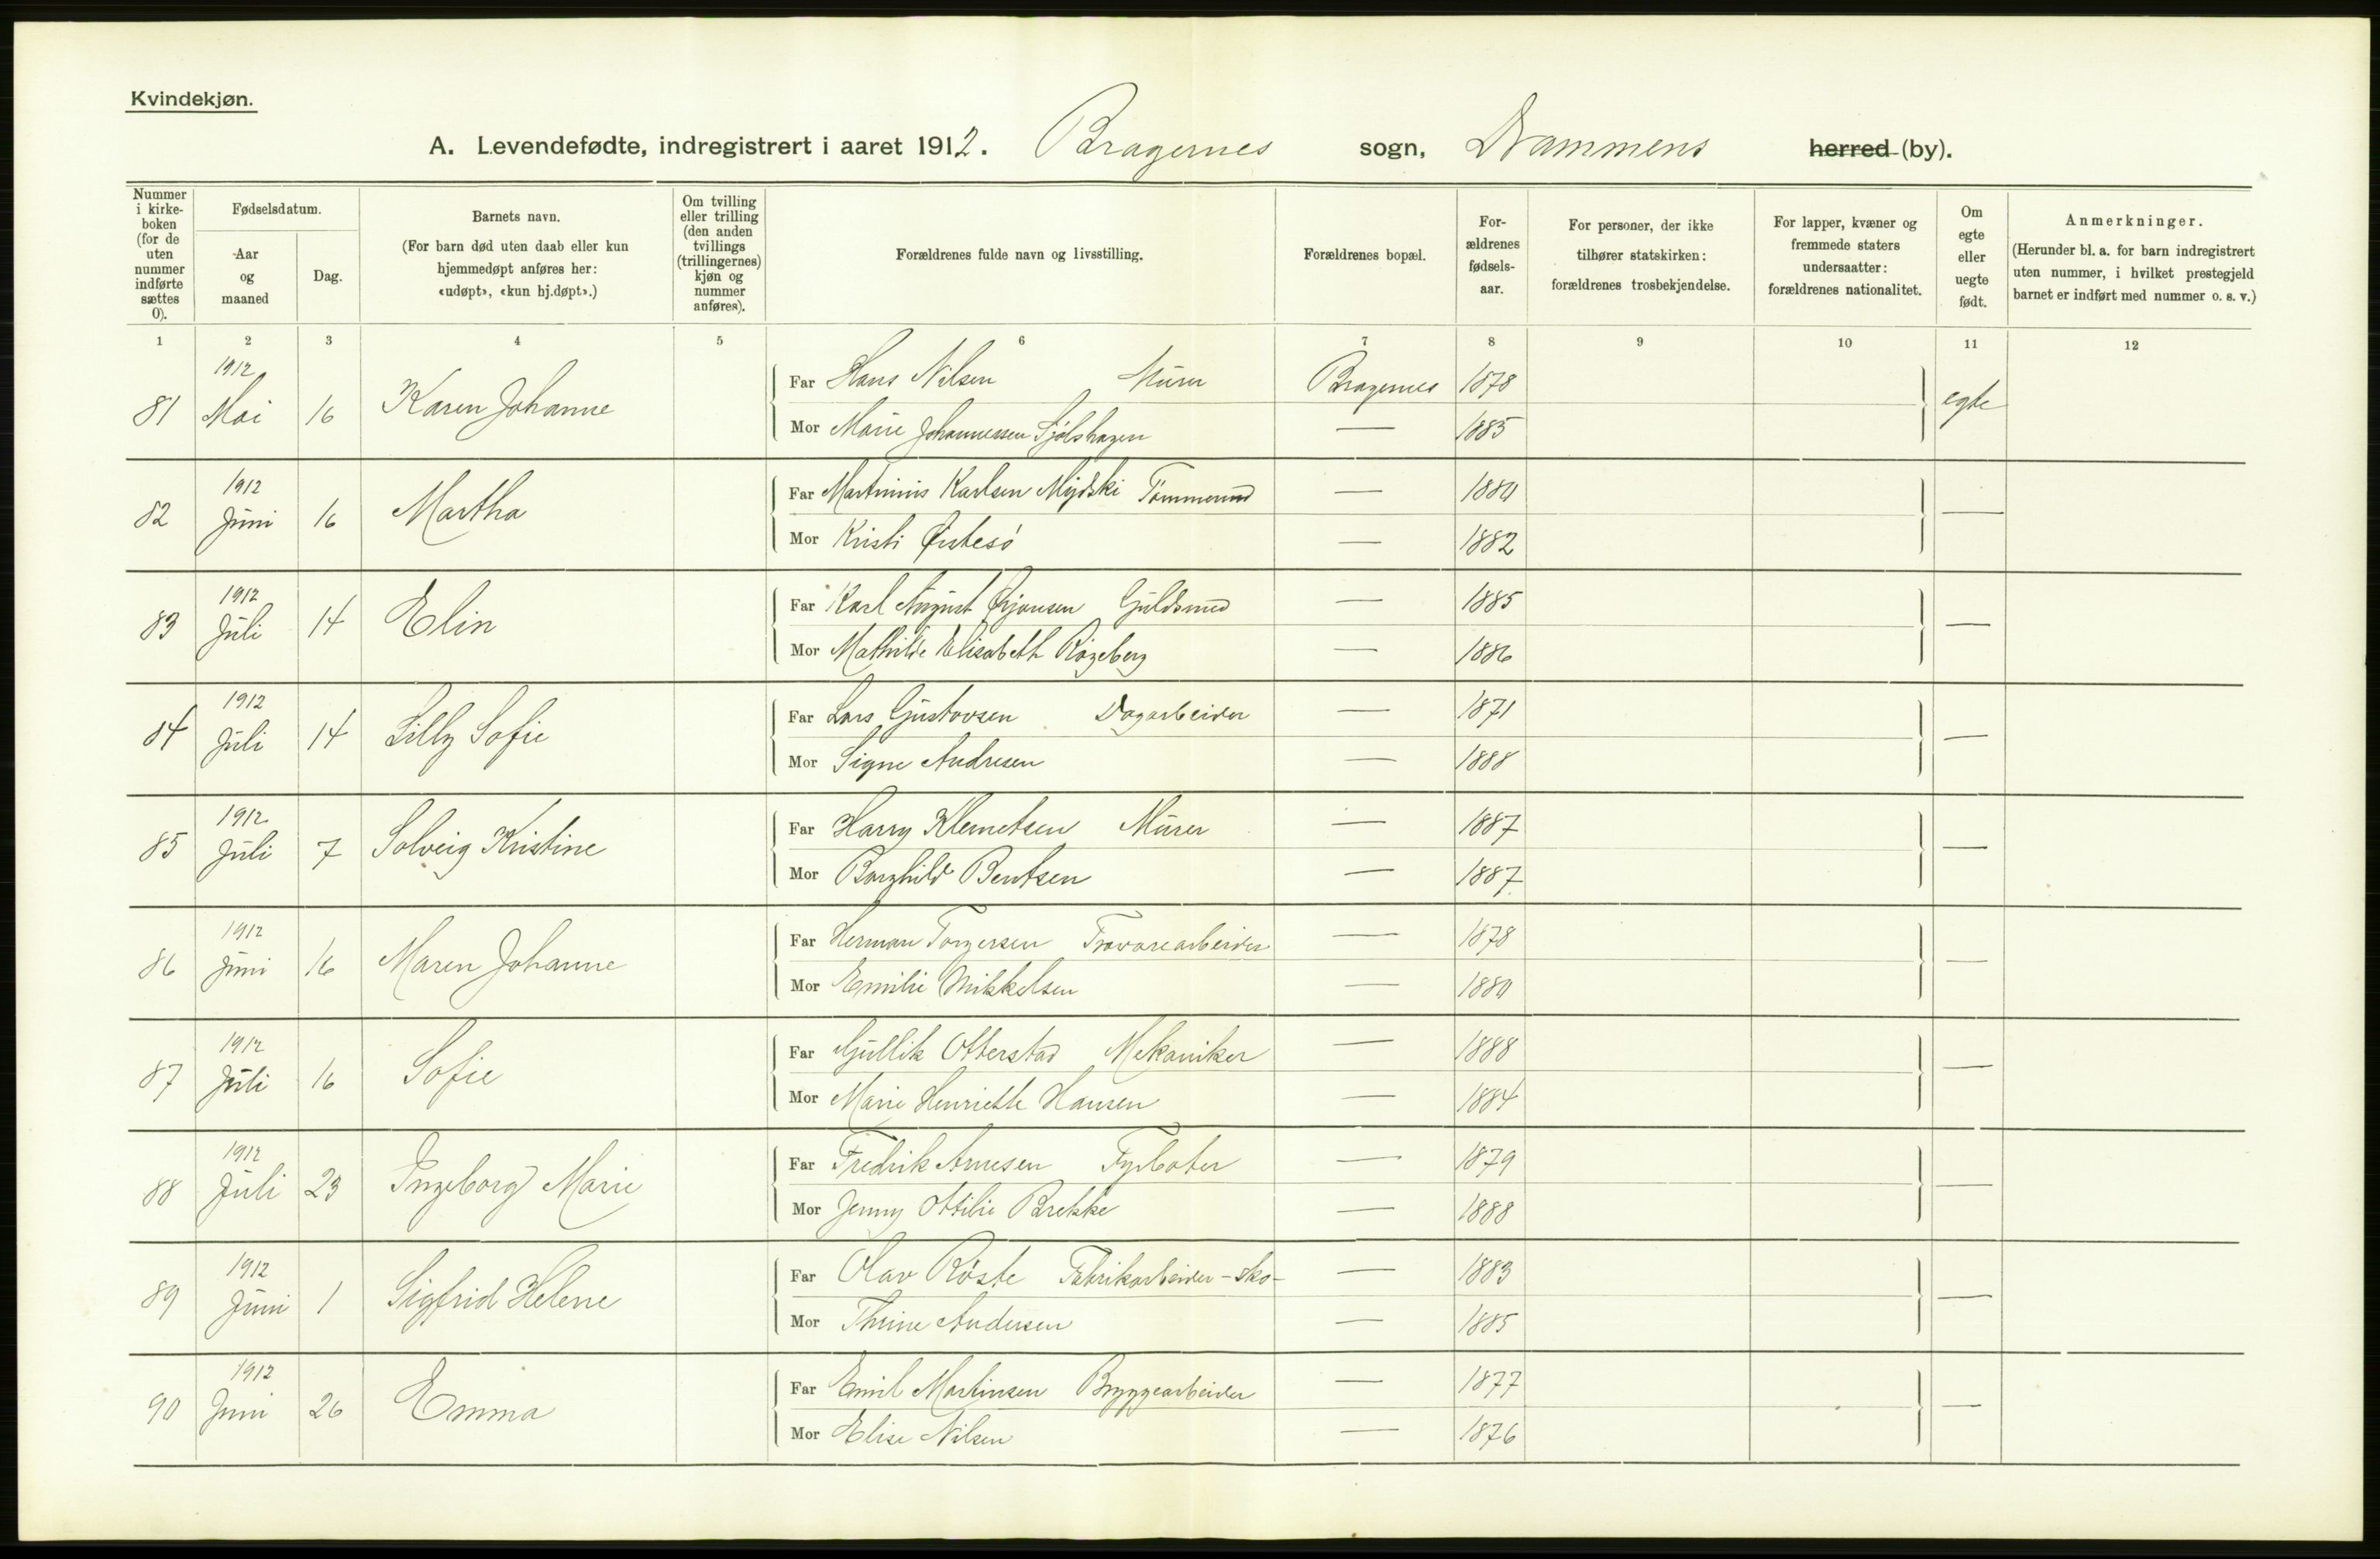 Kvindekjøn.
A. Levendefødte, indregistrert i aaret 1912. Bragernes sogn, Drammens herred (by).
Nummer i kirke-boken (for de uten nummer indførte sættes 0).
Fødselsdatum.
Aar og maaned
Dag.
Barnets navn.
(For barn død uten daab eller kun hjemmedøpt anføres her: «udøpt», «kun hj.døpt».)
Om tvilling eller trilling (den anden tvillings (trillingernes) kjøn og nummer anføres).
Forældrenes fulde navn og livsstilling.
Forældrenes bopæl.
For-ældrenes fødsels-aar.
For personer, der ikke tilhører statskirken: forældrenes trosbekjendelse.
For lapper, kvæner og fremmede staters undersaatter: forældrenes nationalitet.
Om egte eller uegte født.
Anmerkninger.
(Herunder bl. a. for barn indregistrert uten nummer, i hvilket prestegjeld barnet er indført med nummer o. s. v.)
1 2 3 4 5 6 7 8 9 10 11 12
81 1912 Mai 16 Karen Johanne Far Hans Nilsen Murer Bragernes 1878 egte
Mor Marie Johannessen — 1885
82 1912 Juni 16 Martha Far Martinius Karlsen — 1880 —
Mor Kristi Øistesö — 1882
83 1912 Juli 14 Elin Far Karl August Guldsmed — 1885 —
Mor Mathilde Elisabeth Rogeberg — 1886
84 1912 Juli 14 Lilly Sofie Far Lars Gustavsen Dagarbeider — 1871 —
Mor Signe Andresen — 1888
85 1912 Juli 7 Solveig Kristine Far Harry Klemetsen Murer — 1887 —
Mor Borghild Bentsen — 1887
86 1912 Juni 16 Maren Johanne Far Herman Torgersen Trævarearbeider — 1878 —
Mor Emilie Mikkelsen — 1880
87 1912 Juli 16 Sofie Far Gullik Otterstad Mekaniker — 1888 —
Mor Marie Henriette Hansen — 1884
88 1912 Juli 23 Ingeborg Marie Far Fredrik Arnesen Fyrbøter — 1879 —
Mor Jenny Ottilie Brekke — 1888
89 1912 Juni 1 Sigfrid Helene Far Olav Röste Fabrikarbeider - sko- — 1883 —
Mor Thrine Andersen — 1885
90 1912 Juni 26 Emma Far Emil Martinsen Bryggearbeider — 1877 —
Mor Elise Nilsen — 1876